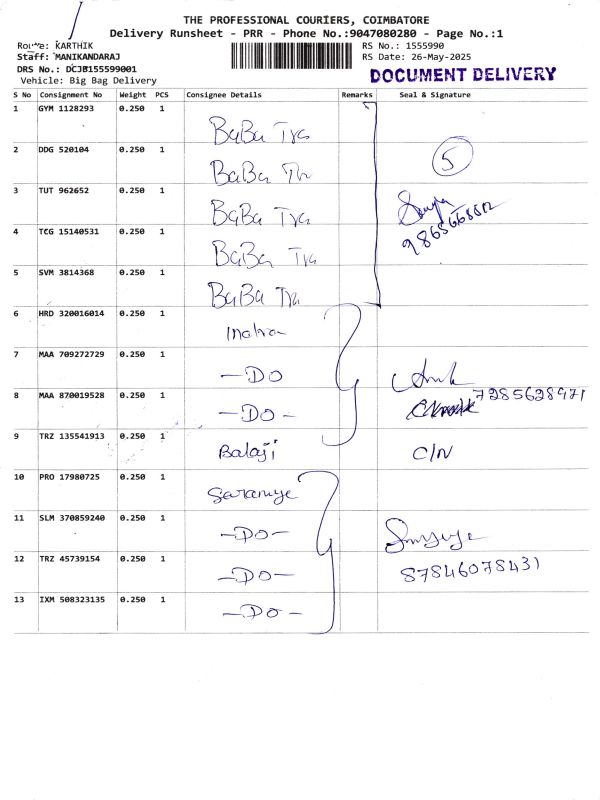 THE PROFESSIONAL COURIERS, COIMBATORE
Delivery Runsheet - PRR - Phone No.:9047080280 - Page No.:1
Route: KARTHIK
RS No.: 1555990
Staff: MANIKANDARAJ
RS Date: 26-May-2025
DRS No.: DCJB155599001
DOCUMENT DELIVERY
Vehicle: Big Bag Delivery
S No Consignment No Weight PCS Consignee Details Remarks Seal & Signature
1 GYM 1128293 0.250 1 BaBa Tra
2 DDG 520104 0.250 1 BaBa Tr 5
3 TUT 962652 0.250 1 BaBa Tra
4 TCG 15140531 0.250 1 BaBa Tra
5 SVM 3814368 0.250 1 BaBa Tra
6 HRD 320016014 0.250 1
7 MAA 709272729 0.250 1 -DO
7285628971
8 MAA 870019528 0.250 1 -DO-
9 TRZ 135541913 0.250 1 Balaji C/N
10 PRO 17980725 0.250 1 Saranya
11 SLM 370859240 0.250 1 -DO-
12 TRZ 45739154 0.250 1 -DO- 87846078431
13 IXM 508323135 0.250 1 -DO-